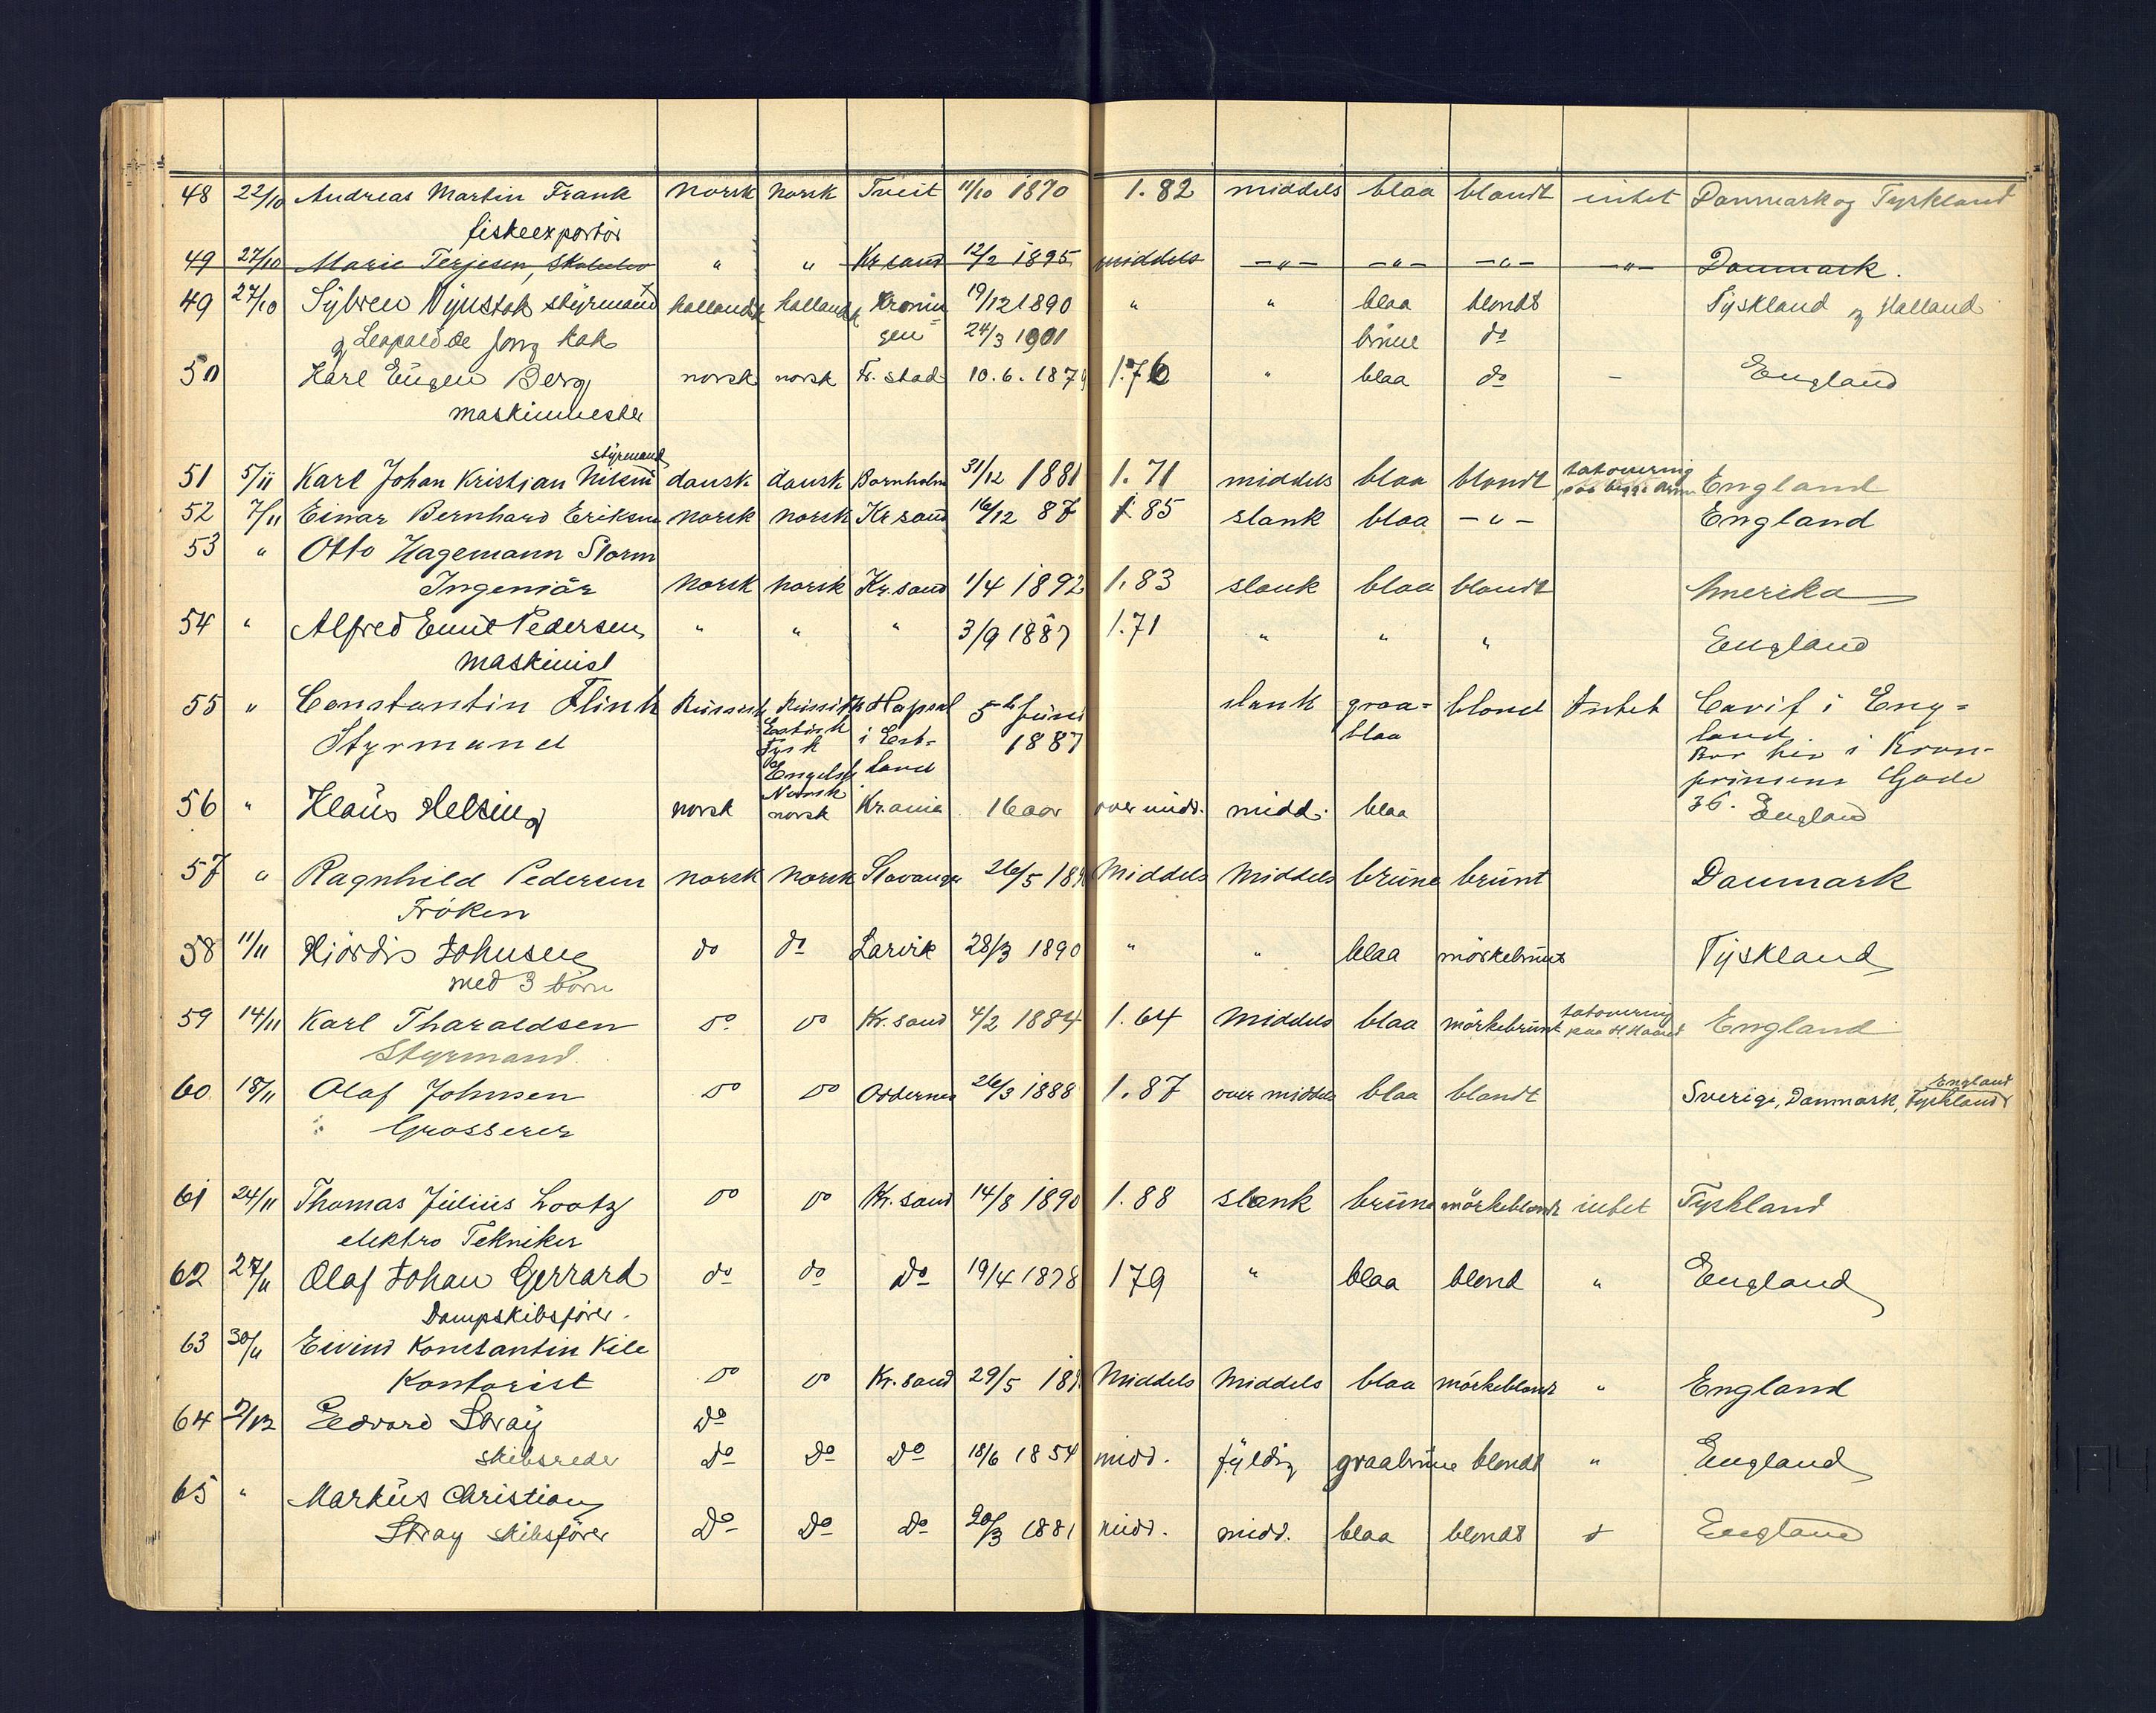 48 22/10 Andreas Martin Frank norsk norsk Tveit 11/10 1870 1.82 middels blaa blandt intet Danmark og Tyskland
fiskeexportör
49 27/10 Marie Terjesen, " " Kr sand 12/2 1895 middels -"- -"- -"- -"- Danmark.
49 27/10 Sybren styrmand hollandsk hollandsk Kronin= 19/12 1890 " " blaa blondt Tyskland og Holland
og Leopold de Jong kok gen 24/3 1901 brune do
50 Karl Eugen Berg norsk norsk Fr. stad 10.6.1879 1.76 " blaa do - England
maskinmester
styrmand
51 5/11 Karl Johan Kristian Nilsen dansk dansk Bornholm 31/12 1881 1.71 middels blaa blondt tatovering paa begge Arme England
52 7/11 Einar Bernhard Eriksen norsk norsk Kr sand 16/12 87 1.85 slank blaa -"- England
53 " Otto Hagemann Storm
Ingeniör norsk norsk Kr. sand 1/4 1892 1.83 slank blaa blandt Amerika
54 " Alfred Emil Pedersen " " " 3/9 1887 1.71 " " " England
maskinist
55 " Constantin Flink Russisk Russisk Hapsal 5te Juni slank graa= blond Intet Cavif i Eng=
Styrmand Estisk Tysk i Est= 1887 blaa land.
Engelsk land Bor her i Kron-
Norsk prinsens Gade
56 " Klaus Helsing norsk norsk Kr.ania 16 aar over midd. midd. blaa 36. England
57 " Ragnhild Pedersen norsk norsk Stavanger 26/5 189 Middels Middels brune brunt Danmark
Fröken
58 11/11 Hjördis Johnsen do do Larvik 28/3 1890 " " blaa mörkebrunt Tyskland
med 3 börn
59 14/11 Karl Tharaldsen do do Kr. sand 4/2 1884 1.64 Middels blaa mörkebrunt tatovering paa H. Haand England
Styrmand.
60 18/11 Olaf Johnsen do do Oddernes 26/3 1888 1.87 over middels blaa blandt Sverige, Danmark, Tyskland England
Grosserer
61 24/11 Thomas Julius Lootz do do Kr. sand 14/8 1890 1.88 slank brune mörkeblondt intet Tyskland
elektro Tekniker
62 27/11 Olaf Johan Gerrard do do do 19/4 1878 179 " blaa blond " England
Dampskibsförer.
63 30/11 Eivind Konstantin Kile
Kontorist do do Kr. sand 29/5 189 Middels Middels blaa mörkeblondt " England
64 2/12 Edvard Stray do
skibsreder do do do 18/6 1854 midd. fyldig graabrune blondt " England
65 " Markus Christian
Stray skibsförer do do do 20/3 1881 midd. midd. blaa blondt England